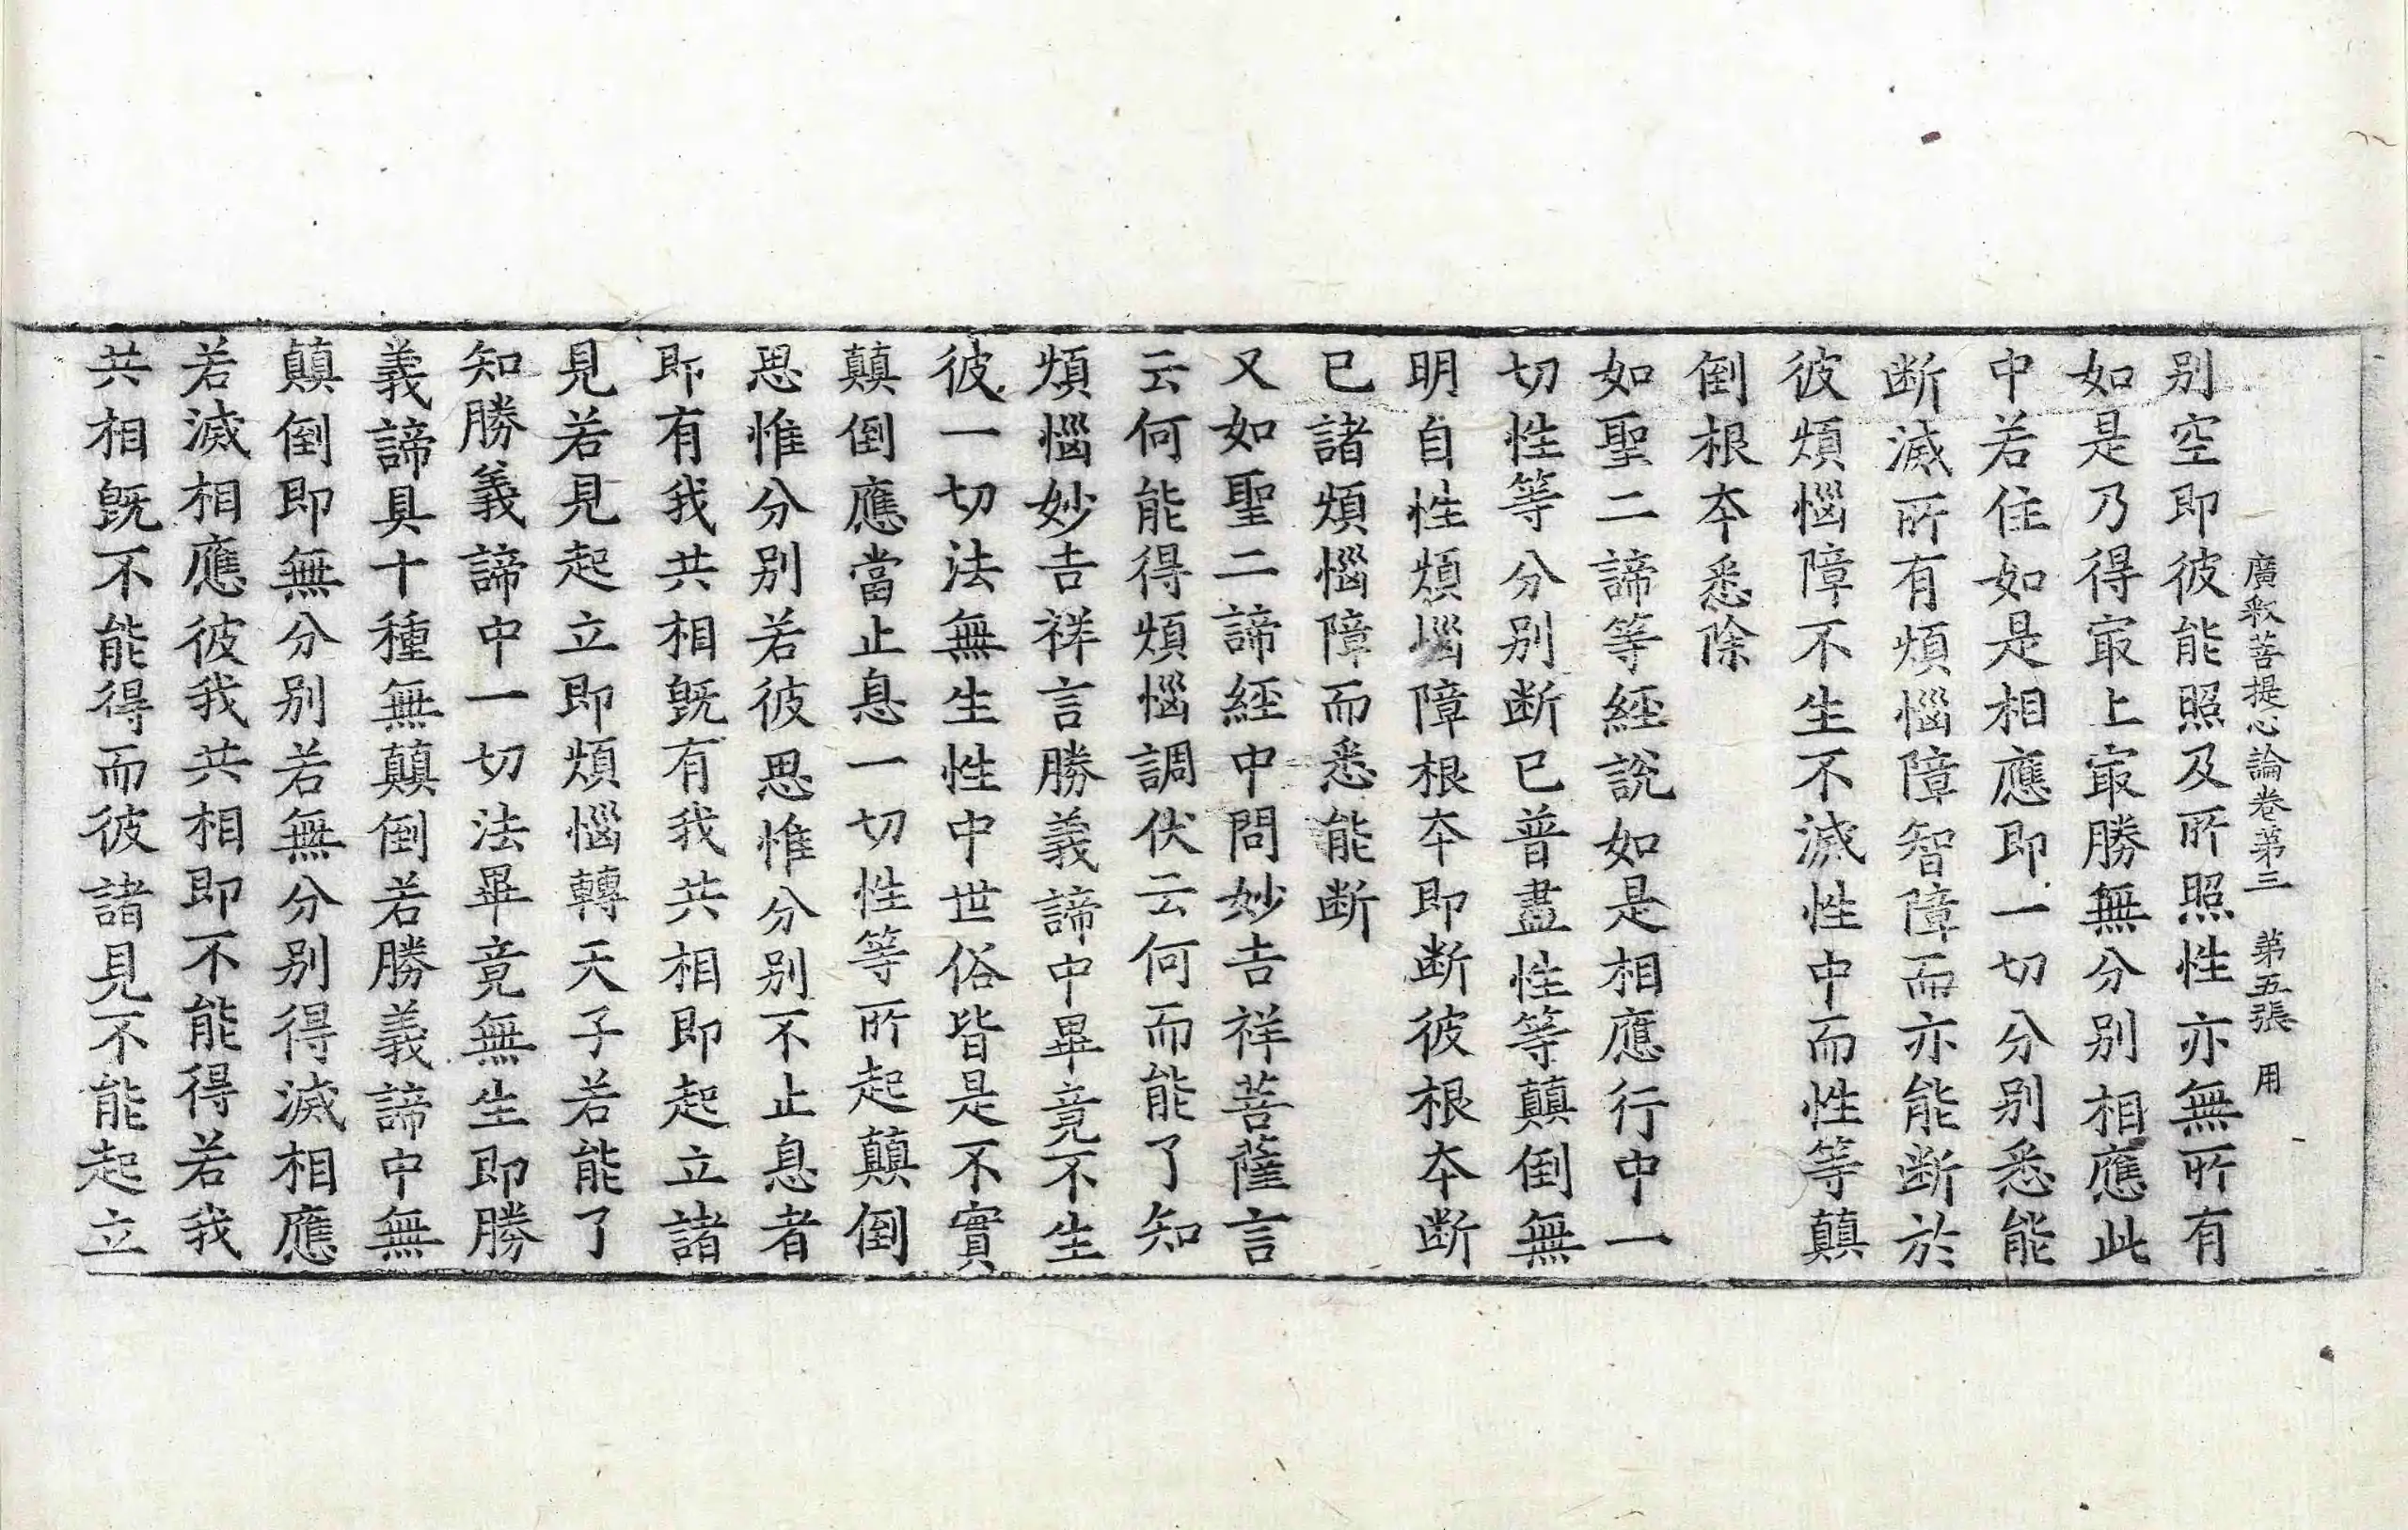 廣釈菩提心論卷第三 第五張 用
别空即彼能照及所照性亦無所有
如是乃得冣上冣勝無分别相應此
中若住如是相應即一切分别悉能
断滅所有煩惱障智障而亦能断於
彼煩惱障不生不滅性中而性等顛
倒根夲悉除
如聖二諦等經說如是相應行中一
切性等分别断已普盡性等顛倒無
明自性煩惱障根夲即断彼根夲断
已諸煩惱障而悉能断
又如聖二諦經中問妙吉祥菩薩言
云何能得煩惱調伏云何而能了知
煩惱妙吉祥言勝義諦中畢竟不生
彼一切法無生性中世俗皆是不實
顛倒應當止息一切性等所起顛倒
思惟分别若彼思惟分别不止息者
即有我共相旣有我共相即起立諸
見若見起立即煩惱轉天子若能了
知勝義諦中一切法畢竟無生即勝
義諦具十種無顛倒若勝義諦中無
顛倒即無分别若無分别得滅相應
若滅相應彼我共相即不能得若我
共相旣不能得而彼諸見不能起立